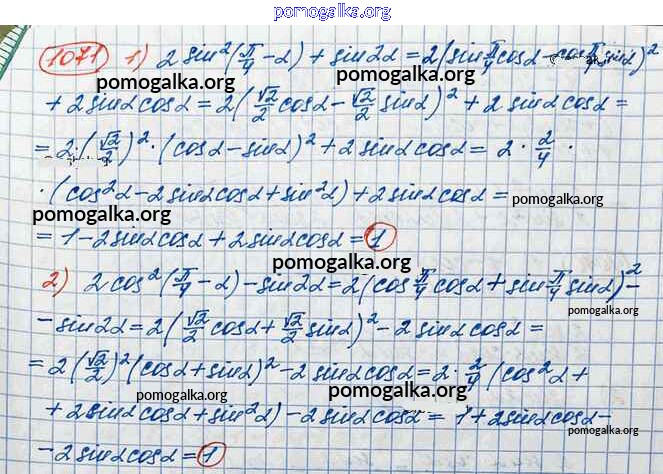 pomogalka.org
1071 1) 2 sin²(π/4 - α) + sin2α = 2(sin π/4 cosα - cos π/4 sinα)²
pomogalka.org pomogalka.org
+ 2 sinα cosα = 2(√2/2 cosα - √2/2 sinα)² + 2 sinα cosα =
= 2·(√2/2)²·(cosα - sinα)² + 2 sinα cosα = 2 · 2/4 ·
·(cos²α - 2 sinα cosα + sin²α) + 2 sinα cosα =
pomogalka.org pomogalka.org
= 1 - 2 sinα cosα + 2 sinα cosα = 1
pomogalka.org
2) 2 cos²(π/4 - α) - sin2α = 2(cos π/4 cosα + sin π/4 sinα)² -
pomogalka.org
- sin2α = 2(√2/2 cosα + √2/2 sinα)² - 2 sinα cosα =
= 2(√2/2)²(cosα + sinα)² - 2 sinα cosα = 2 · 2/4 (cos²α +
pomogalka.org pomogalka.org
+ 2 sinα cosα + sin²α) - 2 sinα cosα = 1 + 2 sinα cosα -
pomogalka.org
- 2 sinα cosα = 1